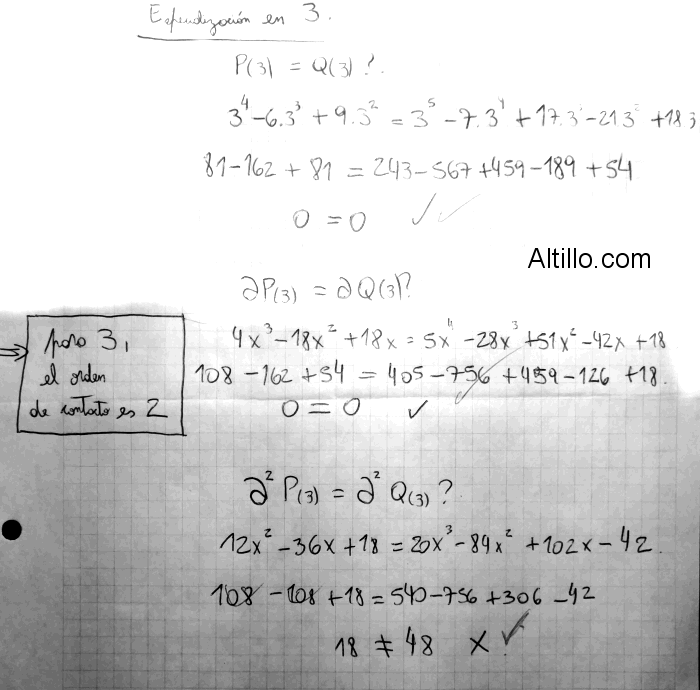 Ejemplización en 3.
P(3) = Q(3)?
3⁴ - 6.3³ + 9.3² = 3⁵ - 7.3⁴ + 17.3³ - 21 3² + 18 3
81 - 162 + 81 = 243 - 567 + 459 - 189 + 54
0 = 0 ✓✓
Altillo.com
∂P(3) = ∂Q(3)?
4x³ - 18x² + 18x = 5x⁴ - 28x³ + 51x² - 42x + 18
108 - 162 + 54 = 405 - 756 + 459 - 126 + 18.
0 = 0 ✓
⇒ para 3,
el orden
de contacto es 2
∂² P(3) = ∂² Q(3)?
12x² - 36x + 18 = 20x³ - 84x² + 102x - 42.
108 - 108 + 18 = 540 - 756 + 306 - 42
18 ≠ 48 X ✓